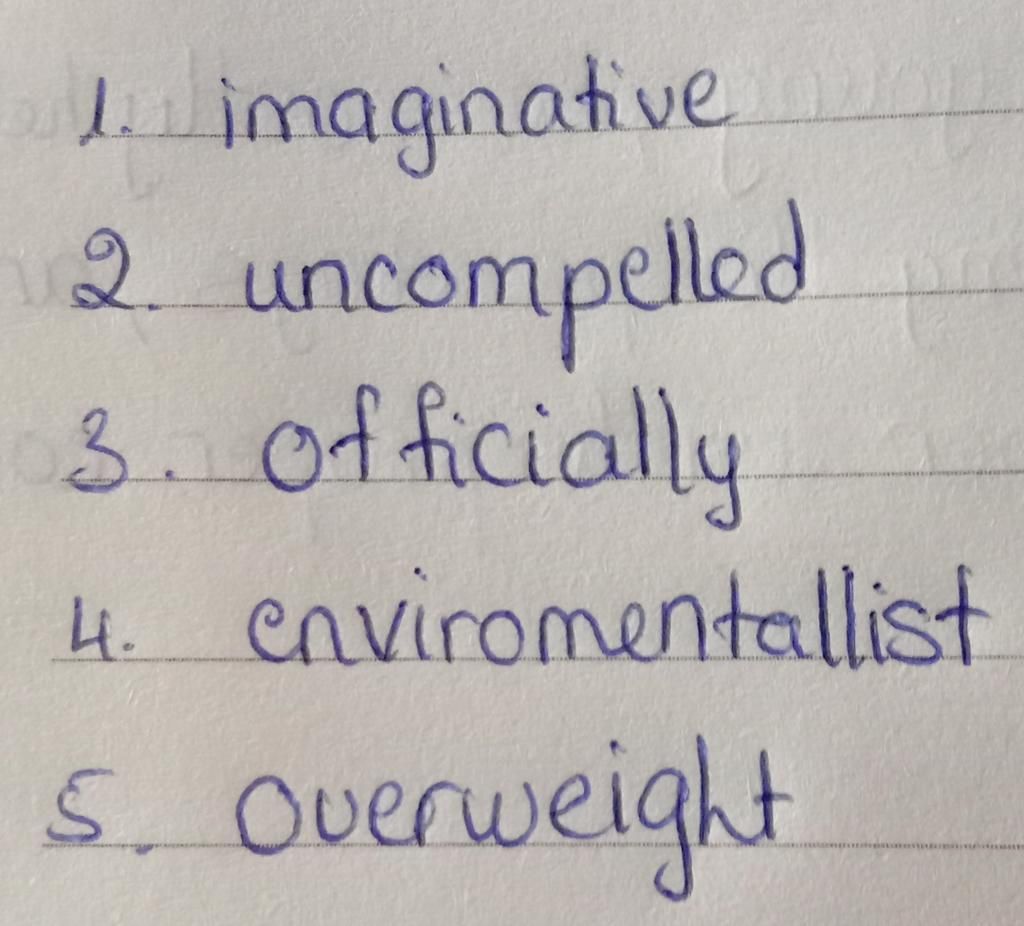 1. imaginative
2. uncompelled
3. officially
4. enviromentallist
5. overweight